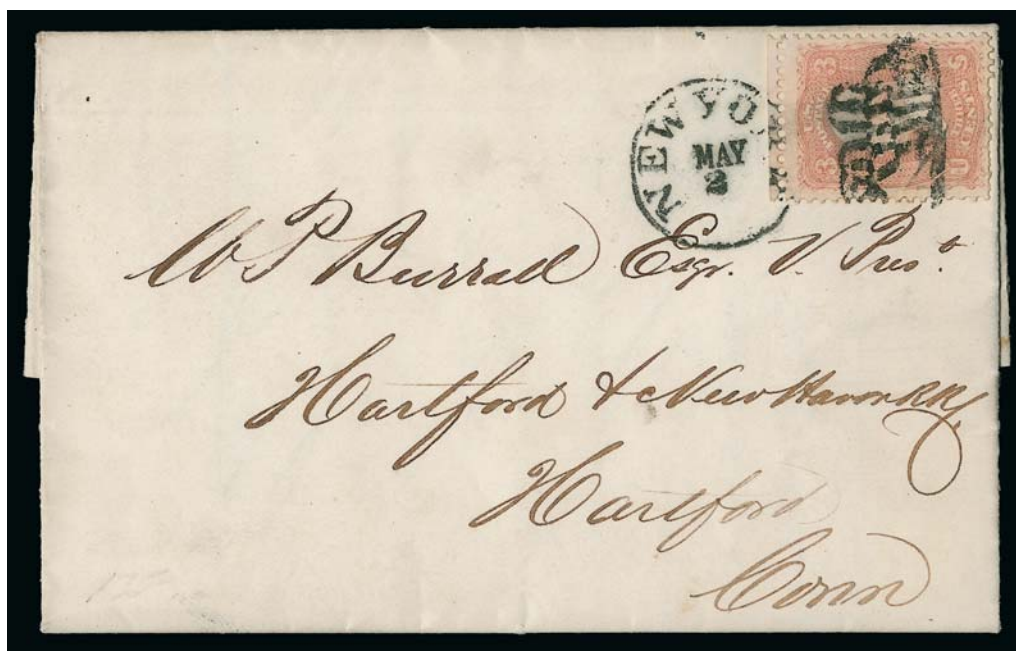 NEW YO
MAY
2
3 3
U S
W P Burrall Esqr. V. Prest.
Hartford & New Haven RR
Hartford
Conn